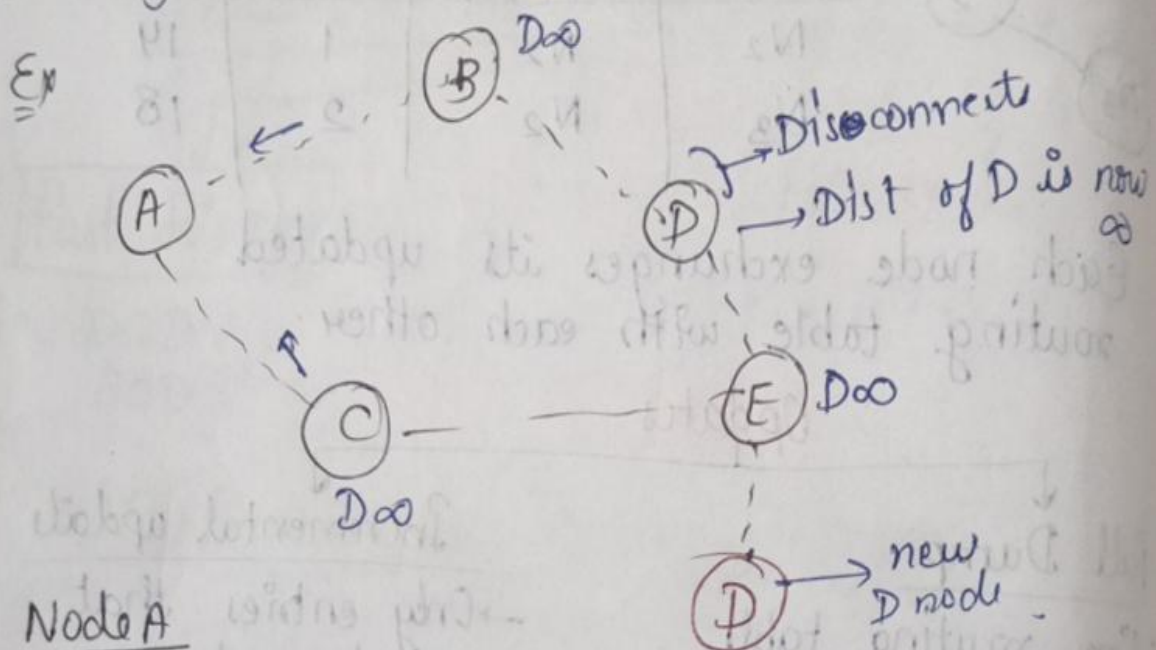 Ex
B D∞
Disconnects
A
D Dist of D is now
∞
E D∞
C
D∞
D new
D node.
Node A